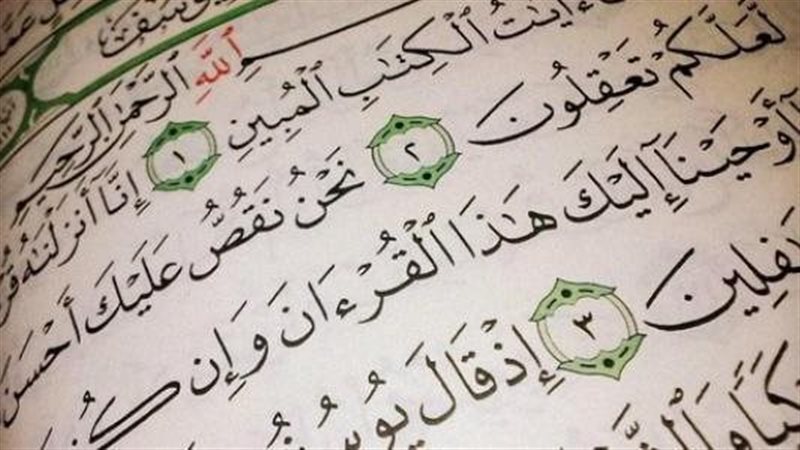 ٱللَّهِ ٱلرَّحْمَٰنِ ٱلرَّحِيمِ
ءَايَٰتُ ٱلْكِتَٰبِ ٱلْمُبِينِ ١ إِنَّآ أَنزَلْنَٰهُ قُرْ
لَّعَلَّكُمْ تَعْقِلُونَ ٢ نَحْنُ نَقُصُّ عَلَيْكَ أَحْسَنَ
أَوْحَيْنَآ إِلَيْكَ هَٰذَا ٱلْقُرْءَانَ وَإِن كُن
ـفِلِينَ ٣ إِذْ قَالَ يُوسُفُ